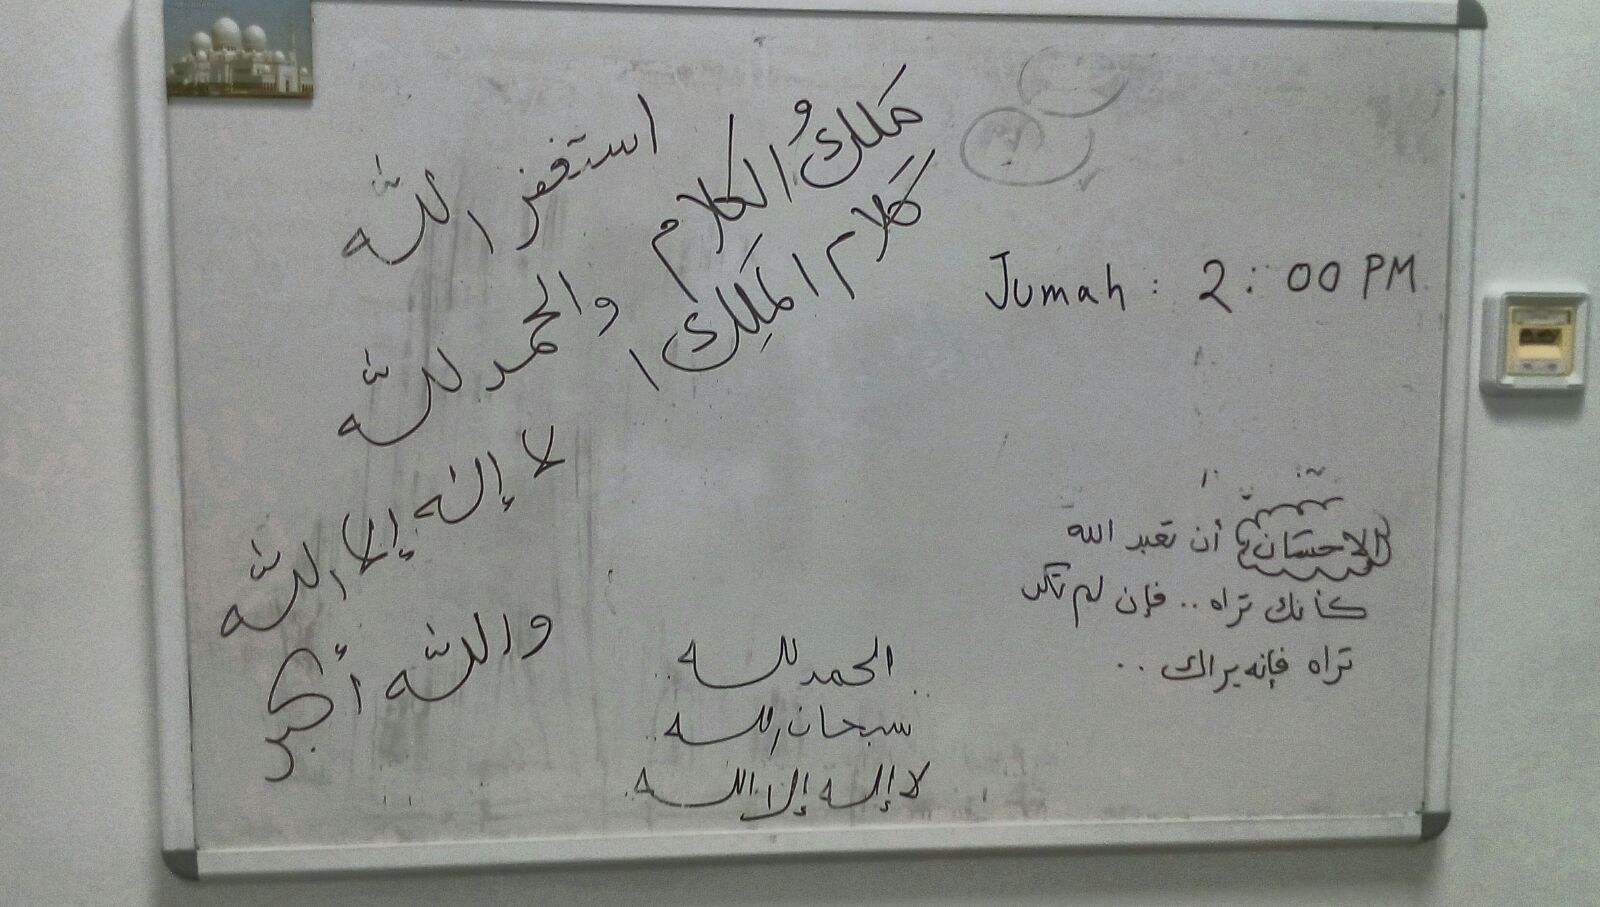 مَلكُ الكلام
كَلام المَلِك !
استغفر اللّه
والحمد للّه
لا إله إلا اللّه
واللّه أكبر
Jumah : 2 : 00 PM
الإحسان أن تعبد الله
كأنك تراه .. فإن لم تكن
تراه فإنه يراك ..
الحمد لله
سبحان الله
لا إله إلا الله